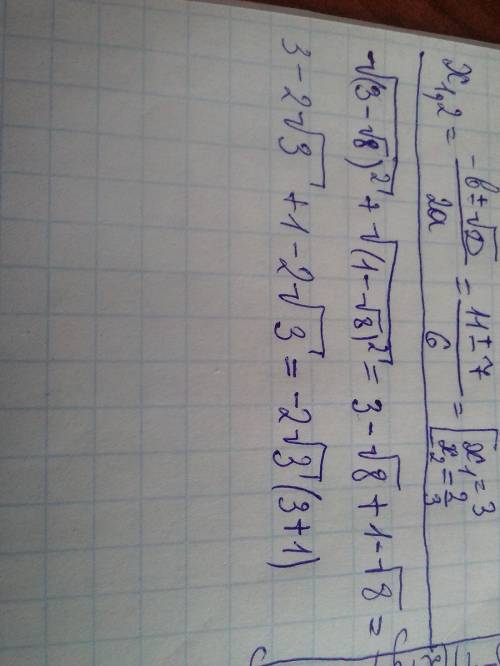 x₁,₂ = (-b±√D)/(2a) = (11±7)/6 = [x₁=3 x₂=2/3
√(3-√8)² + √(1-√8)² = 3-√8+1-√8 =
3-2√3 + 1-2√3 = -2√3(3+1)